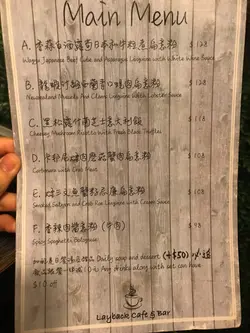 Main Menu
A. 香蒜白酒露筍日本和牛粒意扁意粉 $128
Wagyu Japanese Beef Cube and Asparagus Linguine with White Wine Sauce
B. $128
Newzealand Mussels And Clams Linguine with Lobster Sauce
C. 黑松露付蘭芝士意大利飯 $118
Cheesy Mushroom Risotto with Fresh Black Truffles
D. 蟹肉意粉 $108
Carbonara with Crab Meat
E. 三文魚蟹籽忌廉扁意粉 $108
Smoked Salmon and Crab Roe Linguine with Cream Sauce
F. 香辣肉醬意粉 (牛肉) $98
Spicy Spaghetti Bolognese
Daily soup and dessert (+$50)
10元 Any drinks along with set can have
$10 off
Layback Cafe & Bar